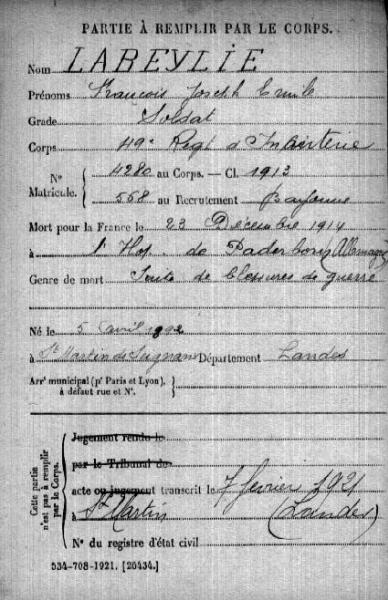 PARTIE À REMPLIR PAR LE CORPS.
Nom LABEYLIE
Prénoms François Joseph Emile
Grade Soldat
Corps 49e Regt d'Infanterie
N° Matricule. 4280 au Corps. — Cl. 1913
568 au Recrutement Bayonne
Mort pour la France le 23 Décembre 1914
à l'Hop. de Paderborn Allemagne
Genre de mort Suite de blessures de guerre
Né le 5 avril 1892
à St Martin de Seignanx Département Landes
Arrt municipal (pr Paris et Lyon),
à défaut rue et N°.
Cette partie n'est pas à remplir par le Corps.
Jugement rendu le
par le Tribunal de
acte ou jugement transcrit le 7 février 1921
à St Martin (Landes)
N° du registre d'état civil
534-708-1921. [26434.]